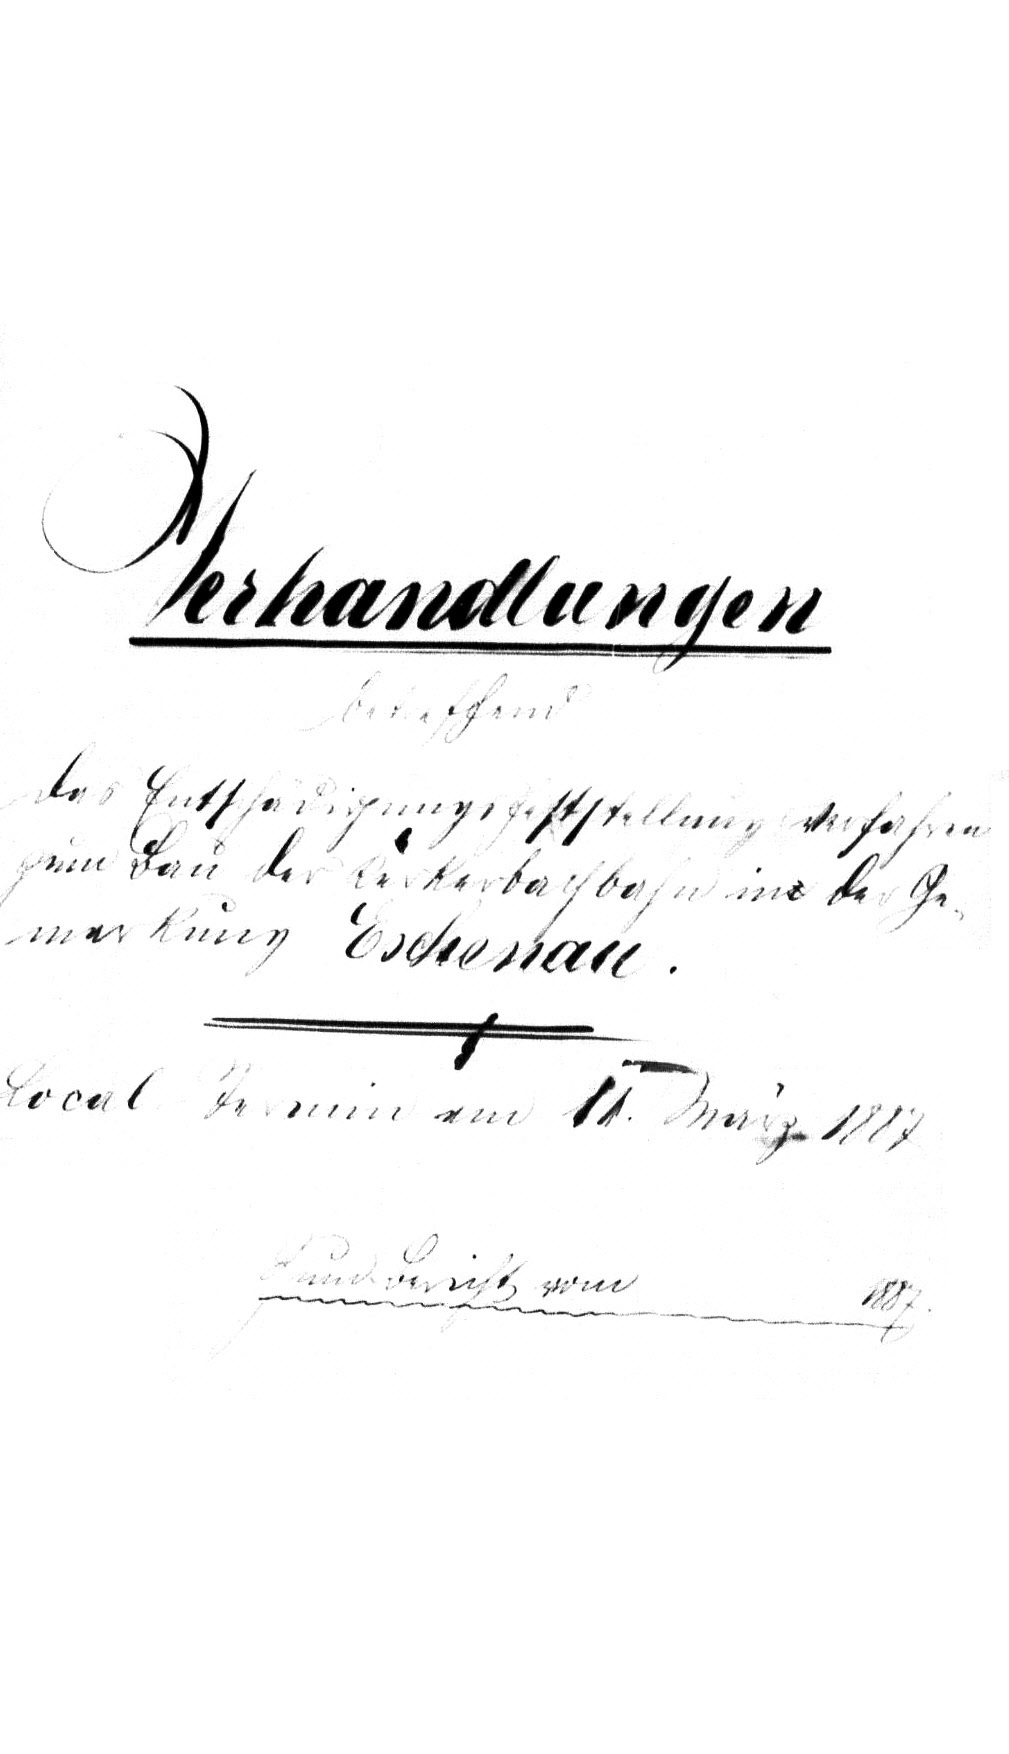 Verhandlungen
betreffend
das Entschädigungsfeststellungsverfahren
zum Bau der Kerkerbachbahn in der Ge-
markung Eschenau.
Local Termin am 11. März 1887
und Bericht vom 1887.